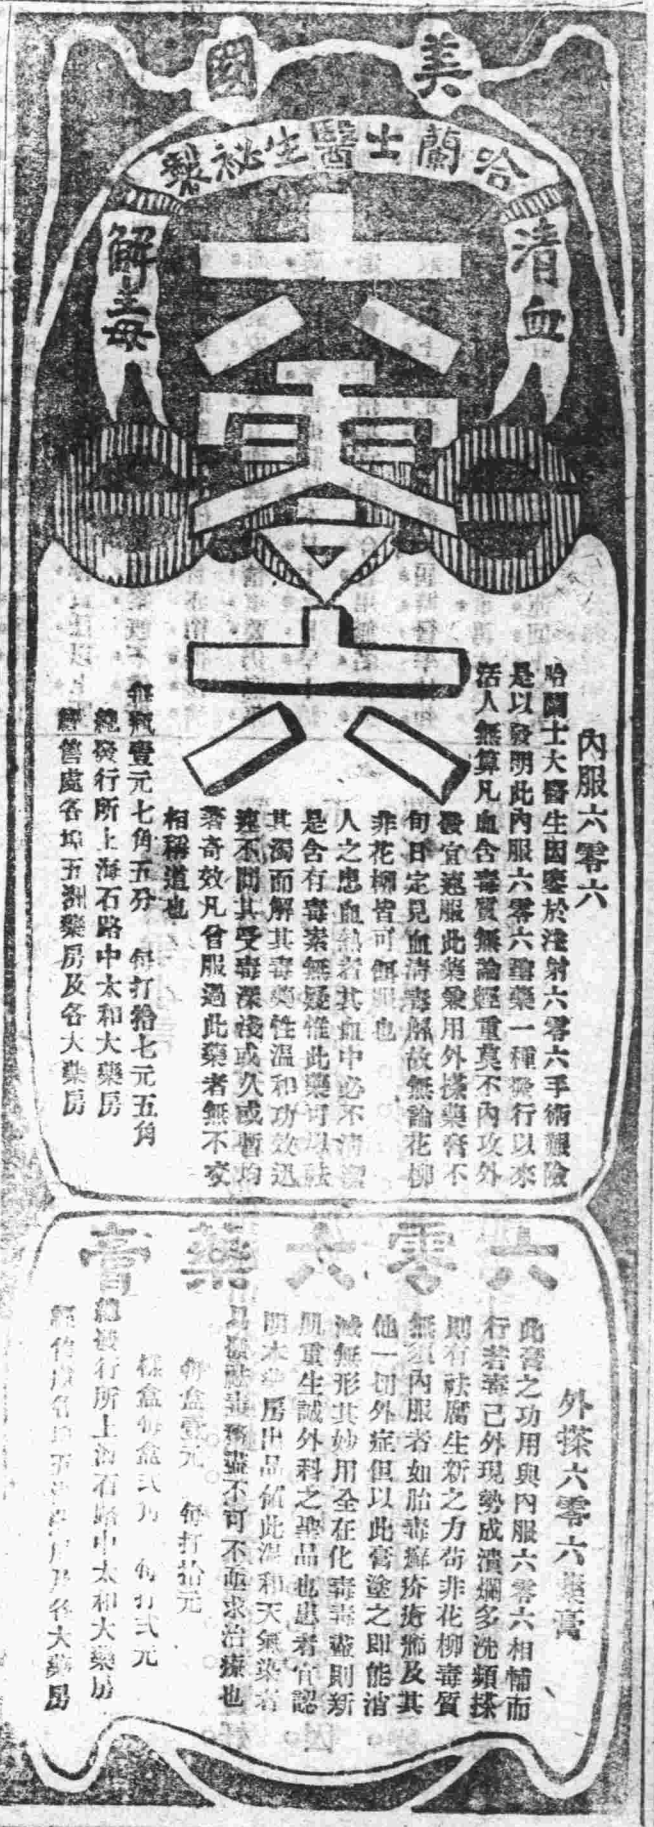 美國
哈蘭士醫生祕製
清血
解毒
六零六
內服六零六
哈蘭士大醫生因鑒於注射六零六手術艱險
是以發明此內服六零六聖藥一種發行以來
活人無算凡血含毒質無論輕重莫不內攻外
發宜速服此藥兼用外搽藥膏不
旬日定見血清毒解故無論花柳
非花柳皆可餌服也
人之患血熱者其血中必不清潔
是含有毒素無疑惟此藥可以祛
其濁而解其毒藥性溫和功效迅
速不問其受毒深淺或久或暫均
著奇效凡曾服過此藥者無不交
相稱道也
每瓶壹元七角五分 每打拾七元五角
總發行所上海石路中太和大藥房
經售處各埠五洲藥房及各大藥房
六零六藥膏
外搽六零六藥膏
此膏之功用與內服六零六相輔而
行若毒已外現勢成潰爛多洗頻搽
則有祛腐生新之力苟非花柳毒質
無須內服者如胎毒癬疥瘡癤及其
他一切外症但以此膏塗之即能消
滅無形其妙用全在化毒毒盡則新
肌重生誠外科之聖品也患者宜認
明本 房出品 此溫和天氣染者
祛毒務盡不可不亟求治療也
每盒壹元 每打拾元
樣盒每盒弍角 每打弍元
總發行所上海石路中太和大藥房
經售處各埠五洲藥房及各大藥房